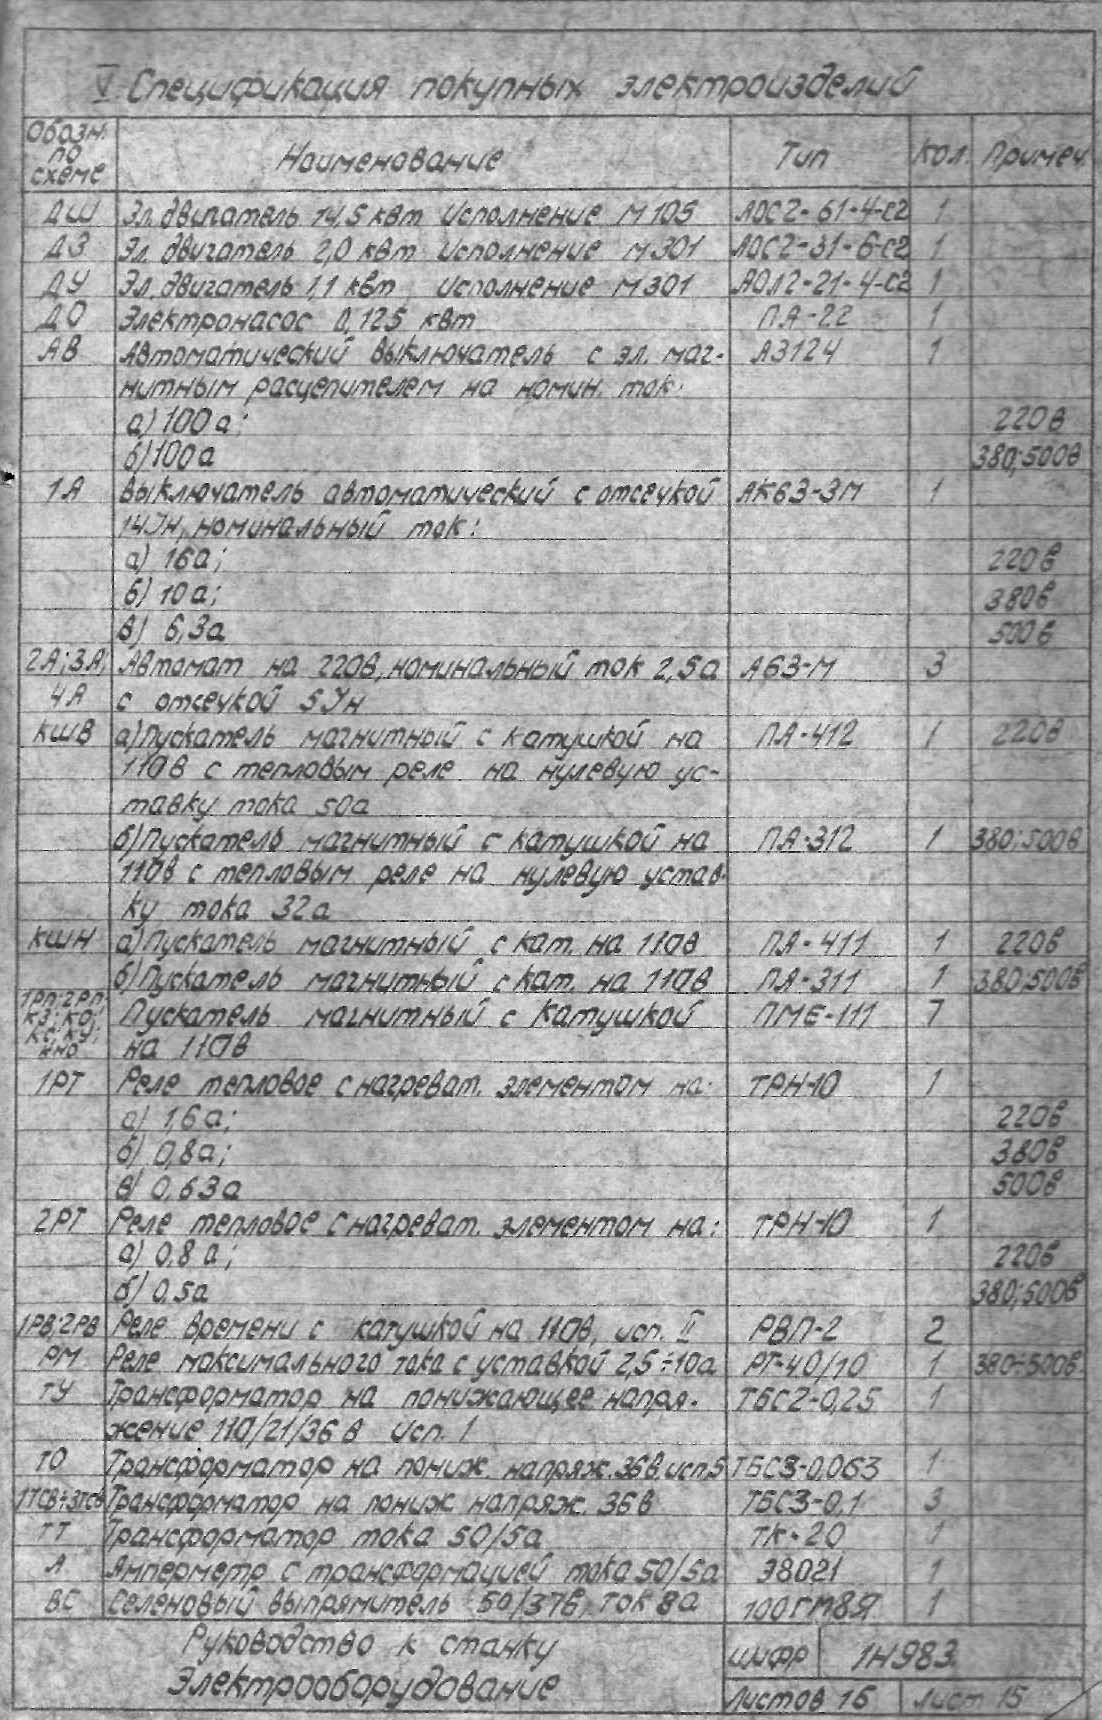 V Спецификация покупных электроизделий
Обозн. по схеме Наименование Тип Кол. Примеч.
ДШ Эл. двигатель 14,5 квт Исполнение М105 АОС2-61-4-С2 1
ДЗ Эл. двигатель 2,0 квт Исполнение М301 АОС2-31-6-С2 1
ДУ Эл. двигатель 1,1 квт исполнение М301 АОЛ2-21-4-С2 1
ДО Электронасос 0,125 квт ПА-22 1
АВ Автоматический выключатель с эл. маг- А3124 1
нитным расцепителем на номин. ток:
а) 100а; 220в
б) 100а 380;500в
1А Выключатель автоматический с отсечкой АК63-3М 1
14Jн, номинальный ток:
а) 16а; 220в
б) 10а; 380в
в) 6,3а 500в
2А;3А; Автомат на 220в, номинальный ток 2,5а А63-М 3
4А с отсечкой 5Jн
КШВ а) Пускатель магнитный с катушкой на ПА-412 1 220в
110в с тепловым реле на нулевую ус-
тавку тока 50а
б) Пускатель магнитный с катушкой на ПА-312 1 380;500в
110в с тепловым реле на нулевую устав-
ку тока 32а
КШН а) Пускатель магнитный с кат. на 110в ПА-411 1 220в
б) Пускатель магнитный с кат. на 110в ПА-311 1 380;500в
1РП;2РП; КЗ; КО; Пускатель магнитный с катушкой ПМЕ-111 7
КУ; на 110в
1РТ Реле тепловое с нагреват. элементом на: ТРН-10 1
а) 1,6а; 220в
б) 0,8а; 380в
в) 0,63а 500в
2РТ Реле тепловое с нагреват. элементом на: ТРН-10 1
а) 0,8а; 220в
б) 0,5а 380;500в
1РВ;2РВ Реле времени с катушкой на 110в, исп. II РВП-2 2
РМ Реле максимального тока с уставкой 2,5÷10а РТ-40/10 1 380÷500в
ТУ Трансформатор на понижающее напря- ТБС2-0,25 1
жение 110/21/36 в Исп. 1
ТО Трансформатор на пониж. напряж. 36в, исп.5 ТБС3-0,063 1
1ТСВ÷3ТСВ Трансформатор на пониж напряж. 36в ТБС3-0,1 3
ТТ Трансформатор тока 50/5а ТК-20 1
А Амперметр с трансформацией тока 50/5а Э8021 1
ВС Селеновый выпрямитель 50/37в, ток 8а 100ГМ8Я 1
Руководство к станку шифр 1Н983
Электрооборудование Листов 16 Лист 15